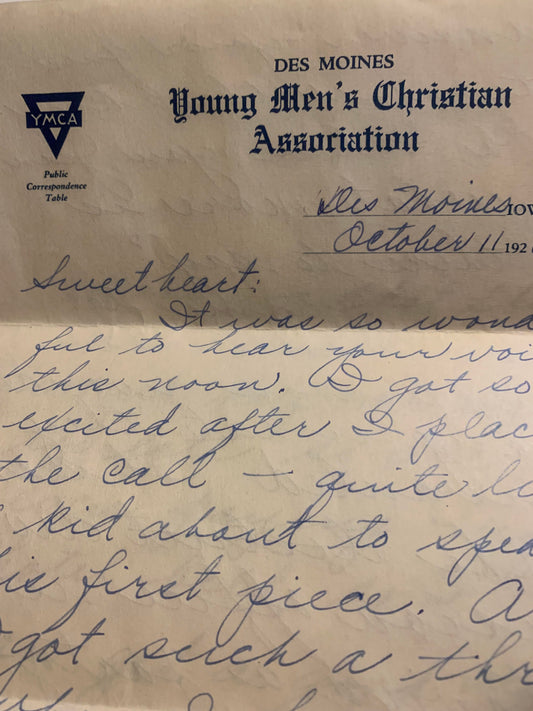 DES MOINES
Young Men's Christian
Association
YMCA
Public
Correspondence
Table
Des Moines, IOW
October 11 192
Sweetheart:
It was so wond
ful to hear your voi
this noon. I got so
excited after I plac
the call — quite li
kid about to spea
is first piece. A
got such a thr